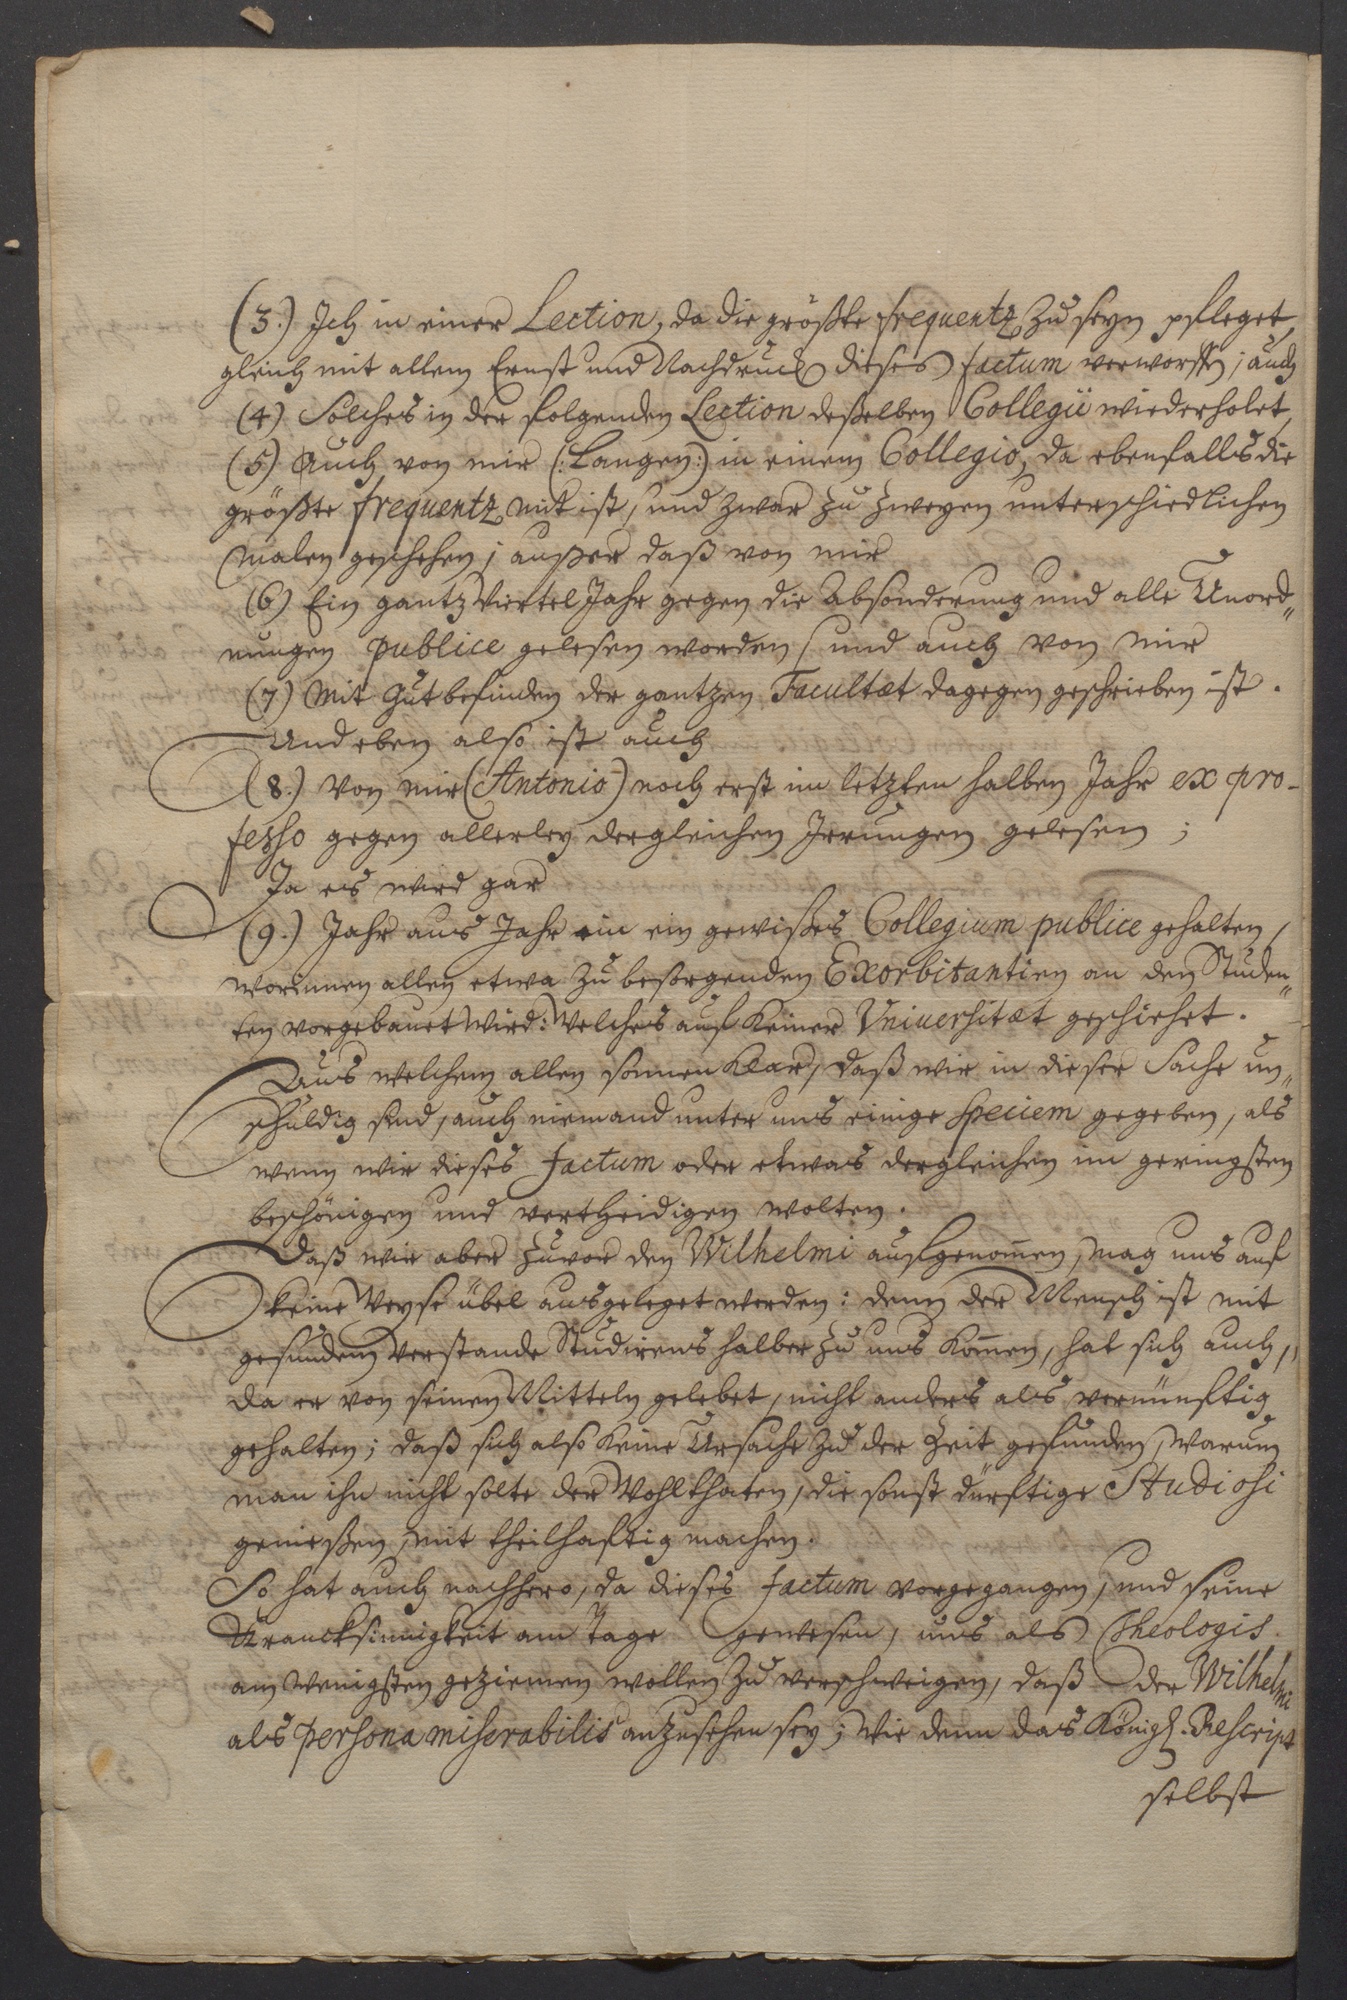 (3.) Ich in einer Lection, da die größte frequentz zu seyn pfleget,
gleich mit allem Ernst und Nachdruck dieses factum verworffen; auch
(4) Solches in der folgenden Lection deßelben Collegii wiederholet,
(5) Auch von mir (:Langen:) in einem Collegio, da ebenfalls die
größte frequentz mit ist, und zwar zu zweyen unterschiedlichen
malen geschehen; außer daß von mir
(6) Ein gantz Viertel Jahr gegen die Absonderung und alle Unord„
nungen publice gelesen worden, und auch von mir
(7) Mit Gutbefinden der gantzen Facultæt dagegen geschrieben ist.
Und eben also ist auch
(8.) Von mir (Antonio) noch erst im letzten halben Jahr ex pro-
fesso gegen allerley dergleichen Irrungen gelesen;
Ja es wird gar
(9.) Jahr aus Jahr ein ein gewißes Collegium publice gehalten,
worinnen allen etwa zu besorgenden Exorbitantien an den Studen„
ten vorgebauet wird: Welches auf keiner Universitæt geschiehet.
Aus welchem allen sonnen klar, daß wir in dieser Sache un„
schuldig sind, auch niemand unter uns einige speciem gegeben, als
wenn wir dieses factum oder etwas dergleichen im geringsten
beschönigen und vertheidigen wolten.
Daß wir aber zuvor den Wilhelmi aufgenom̄en, mag uns auf
keine Weyse übel ausgeleget werden: denn der Mensch ist mit
gesundem Verstande Studirens halber zu uns kom̄en, hat sich auch,
da er von seinen Mitteln gelebet, nicht anders als vernünftig
gehalten; daß sich also keine Ursache zu der Zeit gefunden, warum
man ihn nicht solte der Wohlthaten, die sonst dürftige Studiosi
genießen, mit theilhaftig machen.
So hat auch nachhero, da dieses factum vorgegangen, und seine
Krancksinnigkeit am Tage gewesen, uns als Theologis
am wenigsten geziemen wollen zu verschweigen, daß der Wilhelmi
als persona miserabilis anzusehen sey; wie denn das Königl. Rescript
selbst